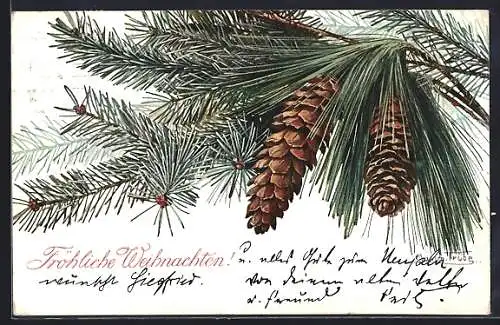 Fröhliche Weihnachten! u. alles Gute zum Neujahr
wünscht Siegfried. von deinem alten
u. Freund